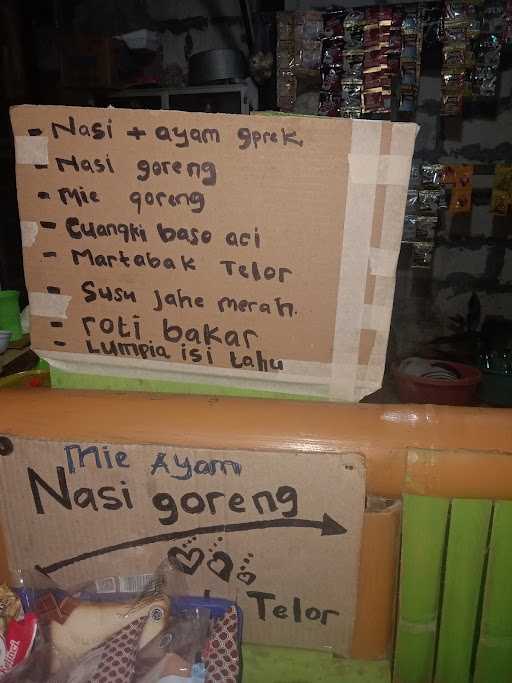 - Nasi + ayam gprek
- Nasi goreng
- mie goreng
- Cuangki baso aci
- Martabak Telor
- Susu jahe merah.
- roti bakar
- Lumpia isi tahu
Mie Ayam
Nasi goreng
Telor